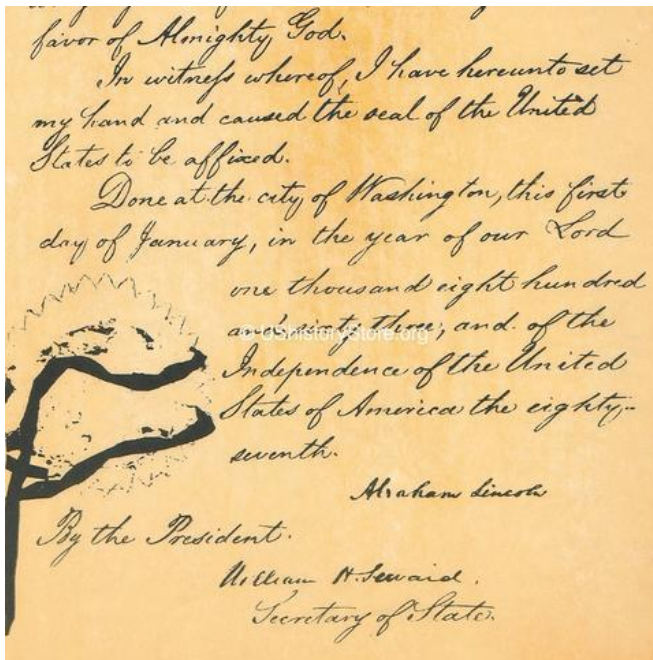 favor of Almighty God.
In witness whereof, I have hereunto set
my hand and caused the seal of the United
States to be affixed.
Done at the city of Washington, this first
day of January, in the year of our Lord
one thousand eight hundred
and sixty three, and of the
© UShistoryStore.org
Independence of the United
States of America the eighty-
seventh.
Abraham Lincoln
By the President.
William H. Seward.
Secretary of State.